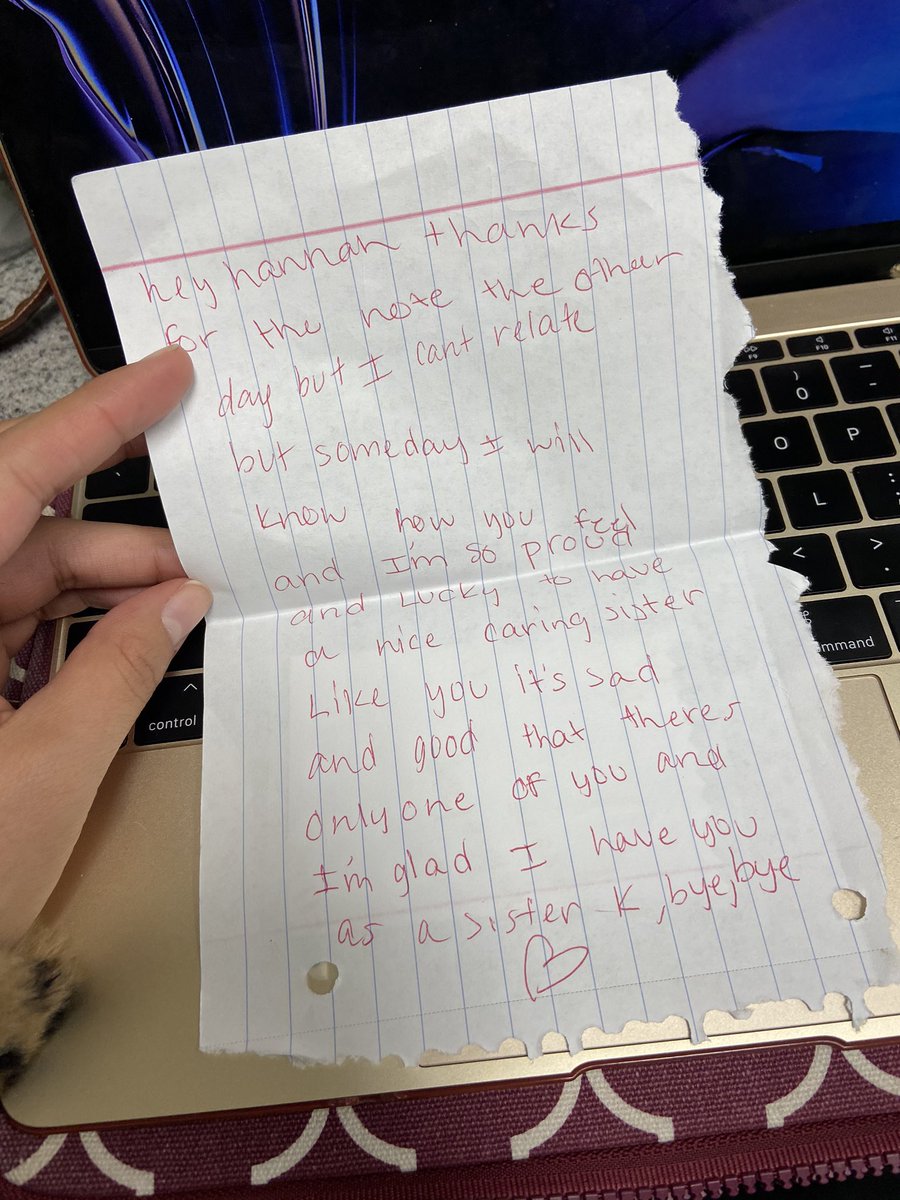 hey hannah thanks
for the note the other
day but I cant relate
but someday I will
know how you feel
and I'm so proud
and Lucky to have
a nice caring sister
Like you it's sad
and good that theres
only one of you and
I'm glad I have you
as a sister K, bye, bye
F10
F11
)
0
_
-
O
P
L
<
>
command
^
control